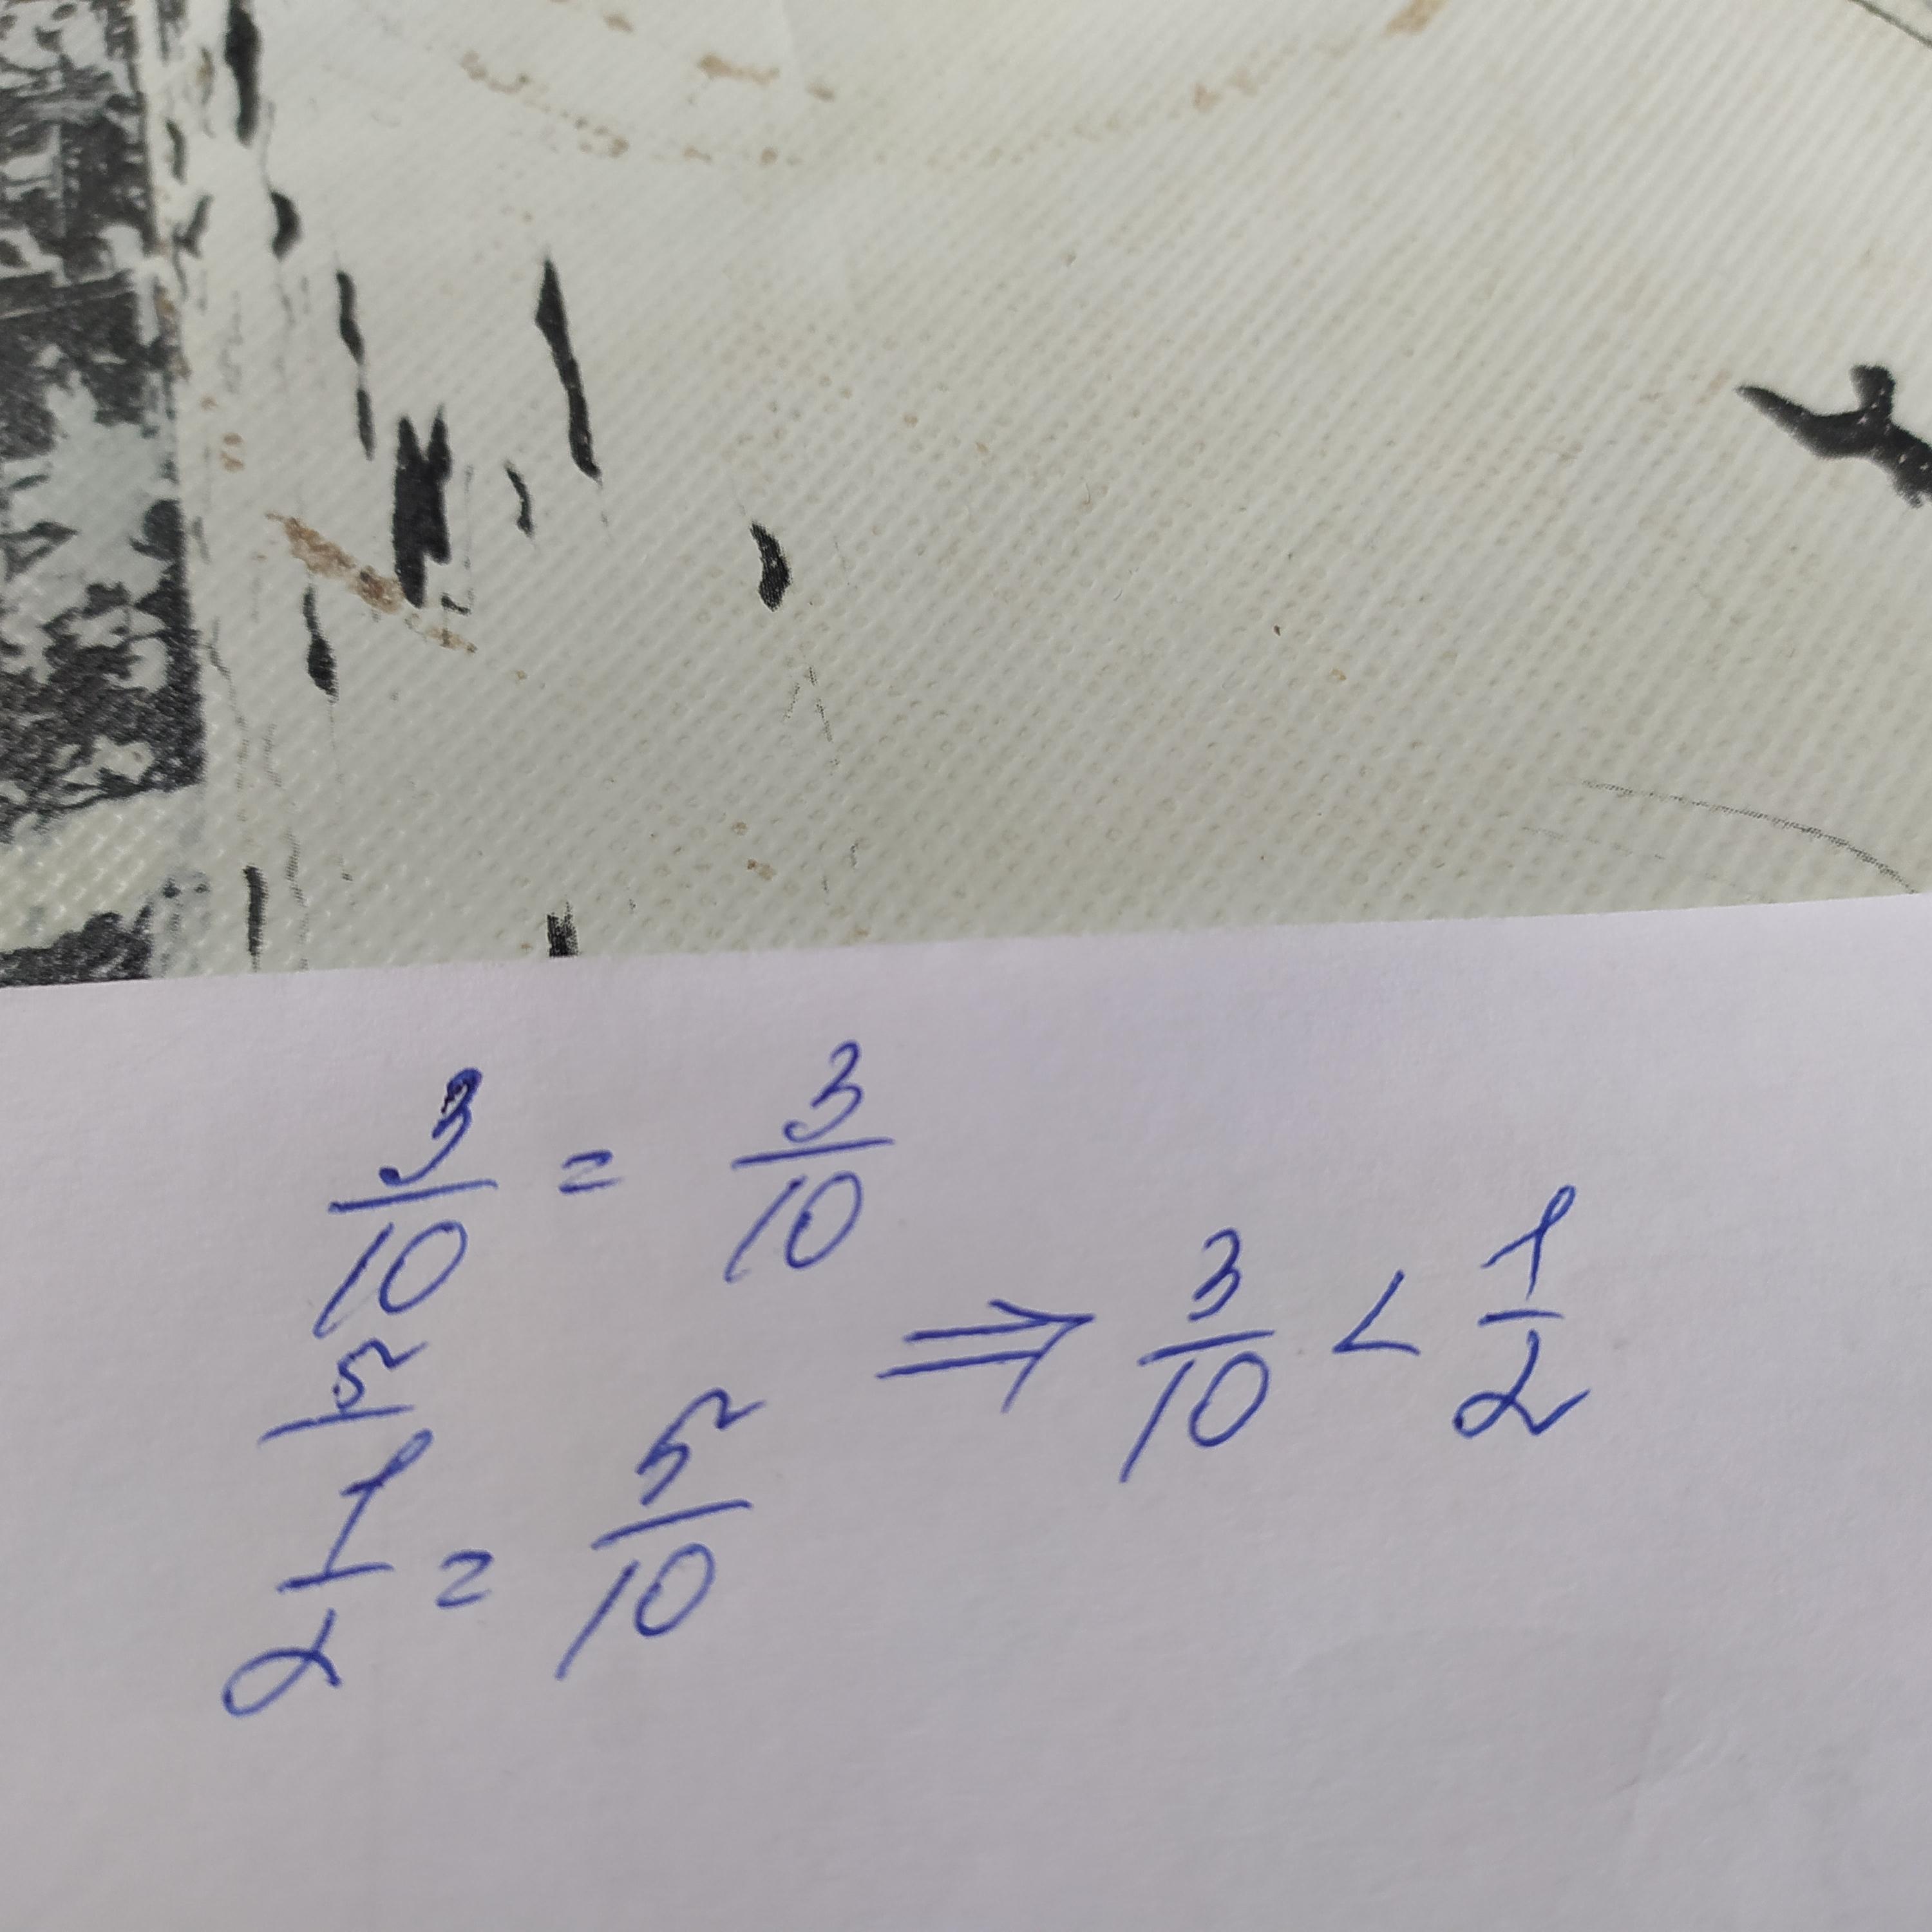 3/10 = 3/10
5/
1/2 = 5/10 ⇒ 3/10 < 1/2